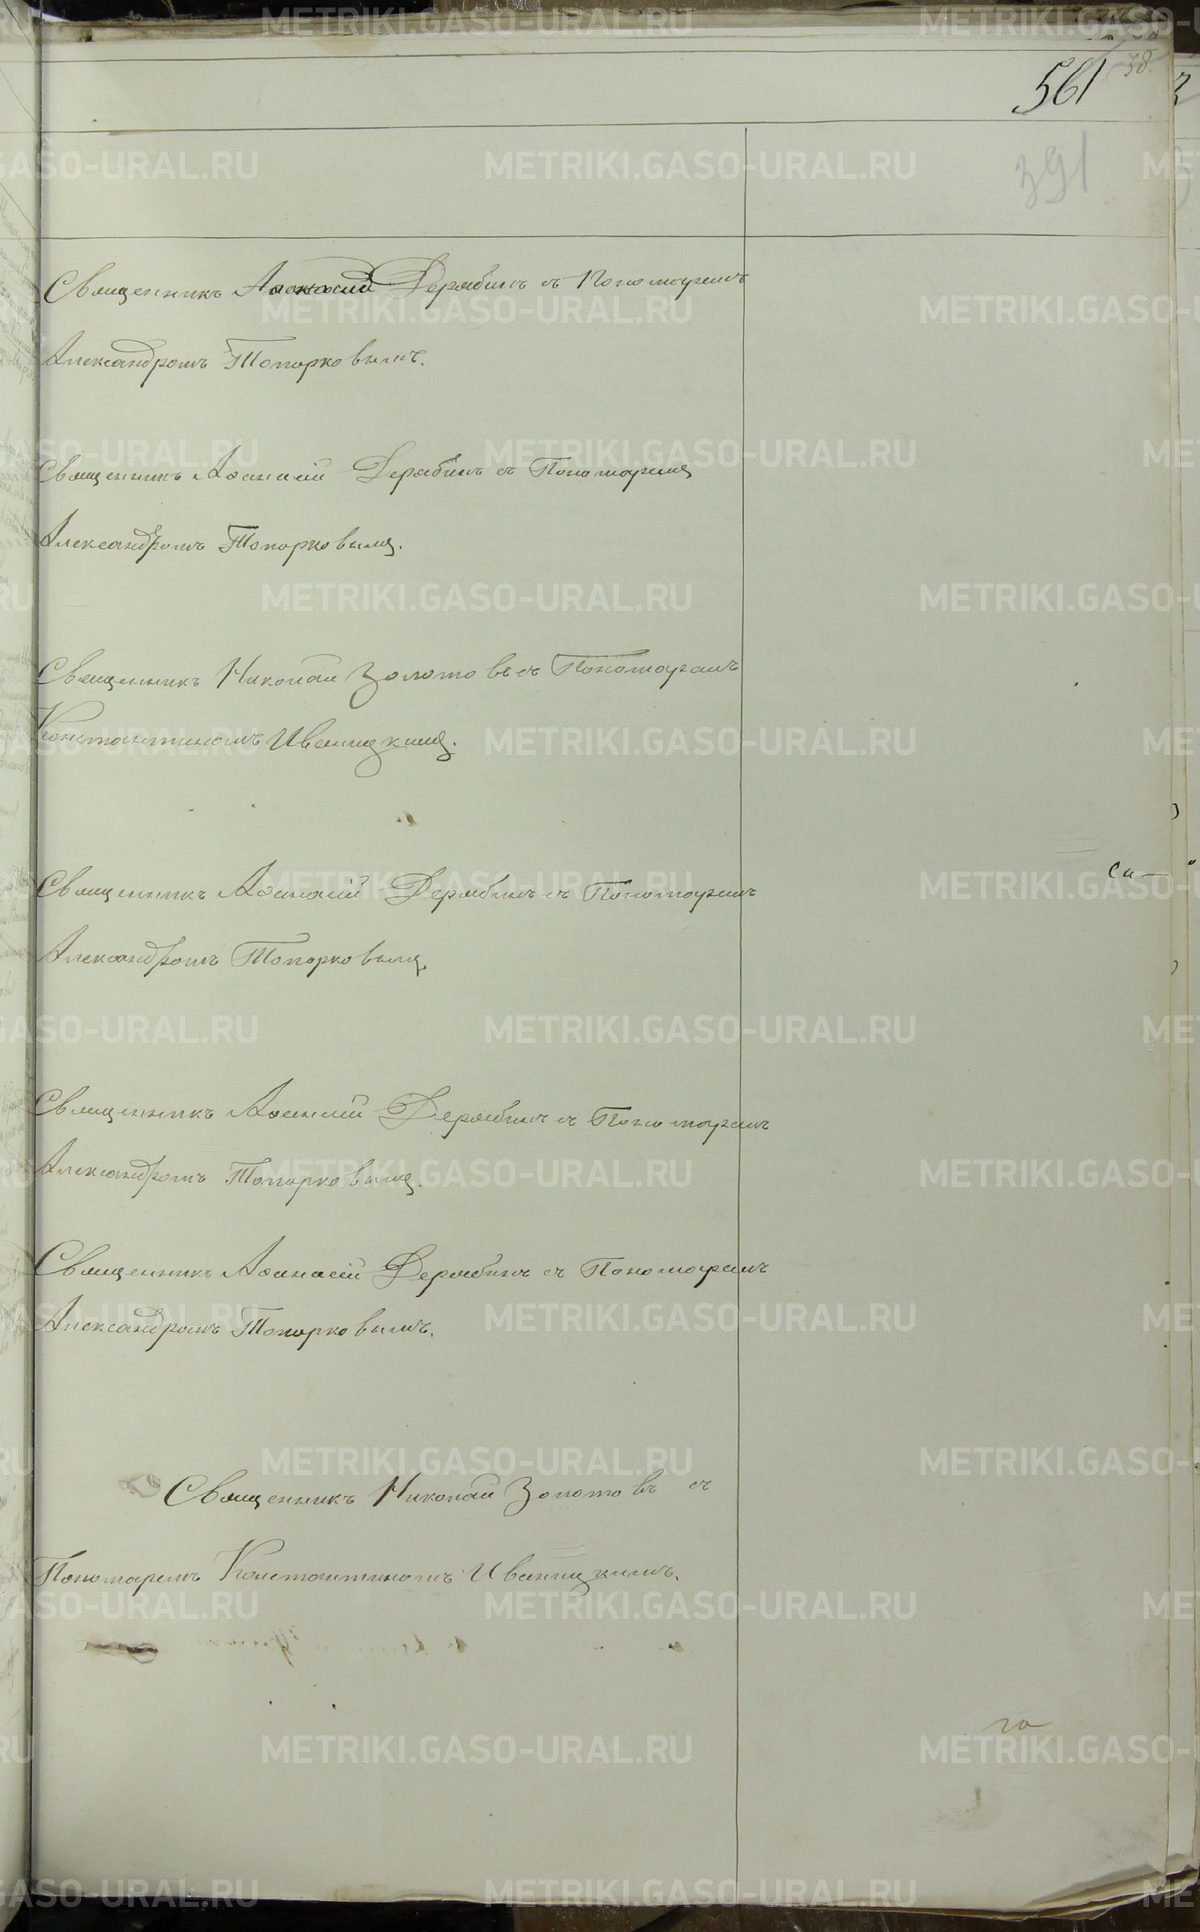 561
38.
391
Священникъ Аѳанасій Дерябинъ съ Пономаремъ
Александромъ Топорковымъ.
Священникъ Аѳанасій Дерябинъ съ Пономаремъ
Александромъ Топорковымъ.
Священникъ Николай Золотовъ съ Пономаремъ
Константиномъ Иваницкимъ.
Священникъ Аѳанасій Дерябинъ съ Пономаремъ
Александромъ Топорковымъ.
Священникъ Аѳанасій Дерябинъ съ Пономаремъ
Александромъ Топорковымъ.
Священникъ Аѳанасій Дерябинъ съ Пономаремъ
Александромъ Топорковымъ.
Священникъ Николай Золотовъ съ
Пономаремъ Константиномъ Иваницкимъ.
METRIKI.GASO-URAL.RU